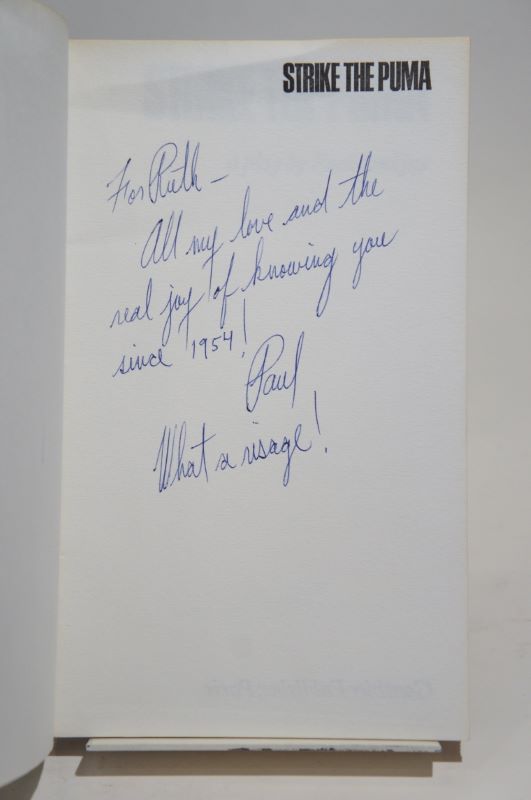 STRIKE THE PUMA
For Ruth –
All my love and the
real joy of knowing you
since 1954!
Paul
What a visage!